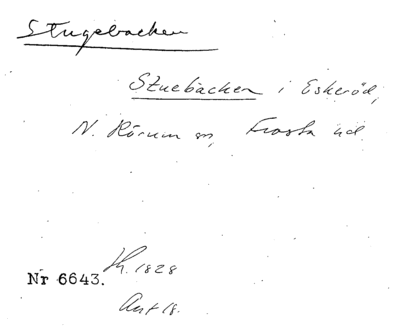 Stugebacken
Stuebäcken i Eskeröd,
N. Rörum sn, Frosta hd
h. 1828
Nr 6643.
Ant 18.